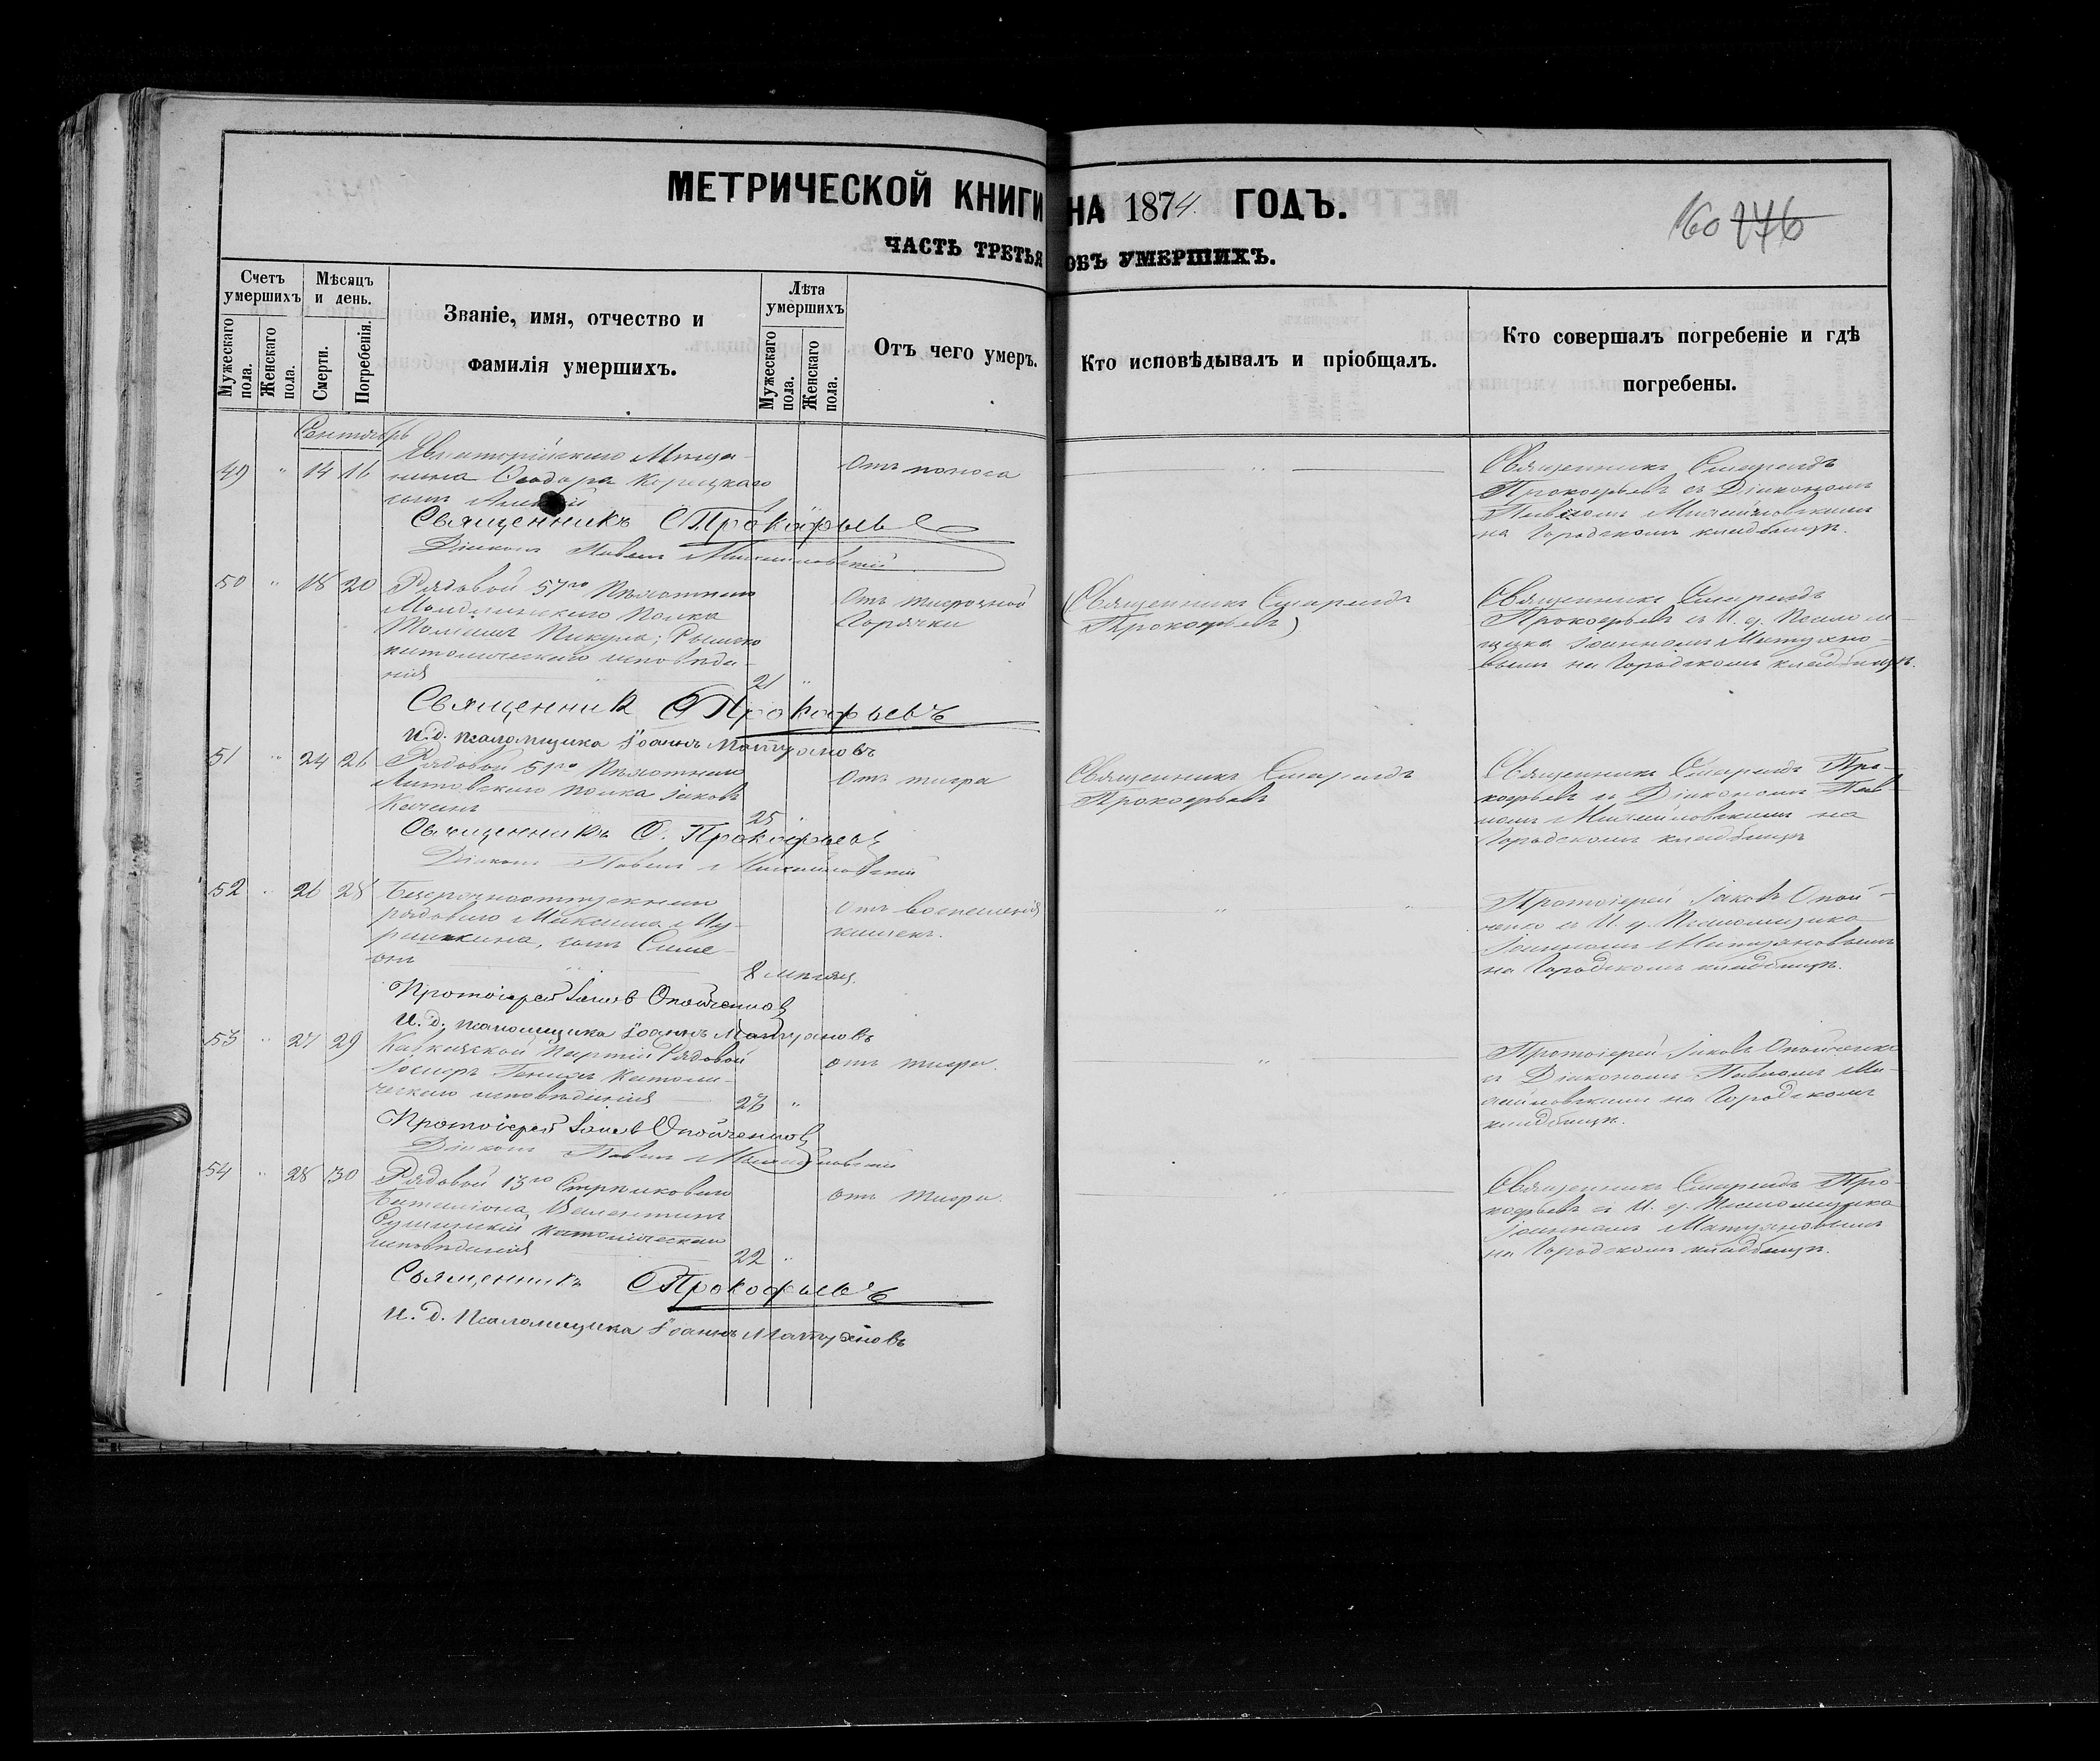 МЕТРИЧЕСКОЙ КНИГИ НА 1874 ГОДЪ.
160 176
ЧАСТЬ ТРЕТЬЯ ОБЪ УМЕРШИХЪ.
Счетъ умершихъ
Мужескаго пола.
Женскаго пола.
Мѣсяцъ и день.
Смерти.
Погребенія.
Званіе, имя, отчество и
фамилія умершихъ.
Лѣта умершихъ
Мужескаго пола.
Женскаго пола.
Отъ чего умеръ.
Кто исповѣдывалъ и пріобщалъ.
Кто совершалъ погребеніе и гдѣ
погребены.
Сентябрь
49 " 14 16
Евпаторійскаго Мѣща-
нина Ѳеодора
сынъ
Отъ поноса
Священникъ Спиридъ
Прокофьевъ съ Діакономъ
Павломъ Михайловскимъ
на Городскомъ кладбищѣ.
Священникъ С Прокофьевъ
Діаконъ Павелъ Михайловскій
50 " 18 20
Рядовой 57го Пѣхотнаго
Модлинскаго Полка
Пикула; Римско
католическаго исповѣда-
нія
21 "
Отъ тифозной
Горячки
Священникъ Спиридъ
Прокофьевъ
Священникъ Спиридъ
Прокофьевъ съ И. д. Псалом-
щика Іоанномъ Матуяно-
вымъ на Городскомъ кладбищѣ.
Священникъ С Прокофьевъ
И. д. псаломщика Іоаннъ Матуяновъ
51 " 24 26
Рядовой 51го Пѣхотнаго
Литовскаго полка Іаковъ
25
Отъ тифа
Священникъ Спиридъ
Прокофьевъ
Священникъ Спиридъ Про-
кофьевъ съ Діакономъ Пав-
ломъ Михайловскимъ на
Городскомъ кладбищѣ
Священникъ С. Прокофьевъ
Діаконъ Павелъ Михайловскій
52 " 26 28
Безсрочноотпускнаго
рядоваго Максима Му-
сынъ Симе-
онъ
8 мѣсяц.
Отъ воспаленія
кишекъ.
Протоіерей Іаковъ Опой-
ченко съ И. д. Псаломщика
Іоанномъ Матуяновымъ
на Городскомъ кладбищѣ.
Протоіерей Іаковъ Опойченко
И. д. псаломщика Іоаннъ Матуяновъ
53 " 27 29
Кавказской партіи Рядовой
католи-
ческаго исповѣданія
"
отъ тифа.
Протоіерей Іаковъ Опойченко
съ Діакономъ Павломъ Ми-
хайловскимъ на Городскомъ
кладбищѣ.
Протоіерей Іаковъ Опойченко
Діаконъ Павелъ Михайловскій
54 " 28 30
Рядовой 13го Стрѣлковаго
Баталіона, Валентинъ
католическаго
исповѣданія
22 "
отъ тифа.
Священникъ Спиридъ Про-
кофьевъ съ И. д. Псаломщика
Іоанномъ Матуяновымъ
на Городскомъ кладбищѣ.
Священникъ С Прокофьевъ
И. д. Псаломщика Іоаннъ Матуяновъ